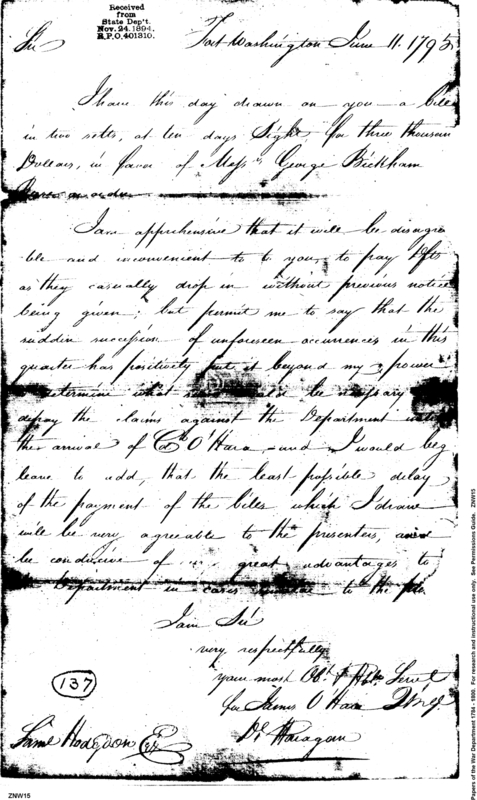 Received
from
State Dep't.
Nov. 24. 1894.
R.P.O. 401310.
Sir
Fort Washington June 11. 1795
I have this day drawn on you a bill
in two setts, at ten days Sight, for three thousand
Dollars, in favor of Messrs George Bickham
I am apprehensive that it will be disagrea
ble and inconvenient to to you, to pay Dfts
as they casually drop in without previous notice
being given; but permit me to say that the
suddin succession of unforeseen occurrences in this
quarter has positively put it beyond my power
determine what be necessary
defray the claims against the Department
the arrival of Col O'Hara, and I would beg
leave to add, that the least possible delay
of the payment of the bills which I draw
will be very agreeable to the presenters, and
be conducive of great advantages to
Department in cases to the
I am Sir
very respectfully
your most Obt & Hble Servt
for James O'Hara QMG
Haragan
137
Saml Hodgdon Esqr
ZNW15
Papers of the War Department 1784 - 1800. For research and instructional use only. See Permissions Guide. ZNW15